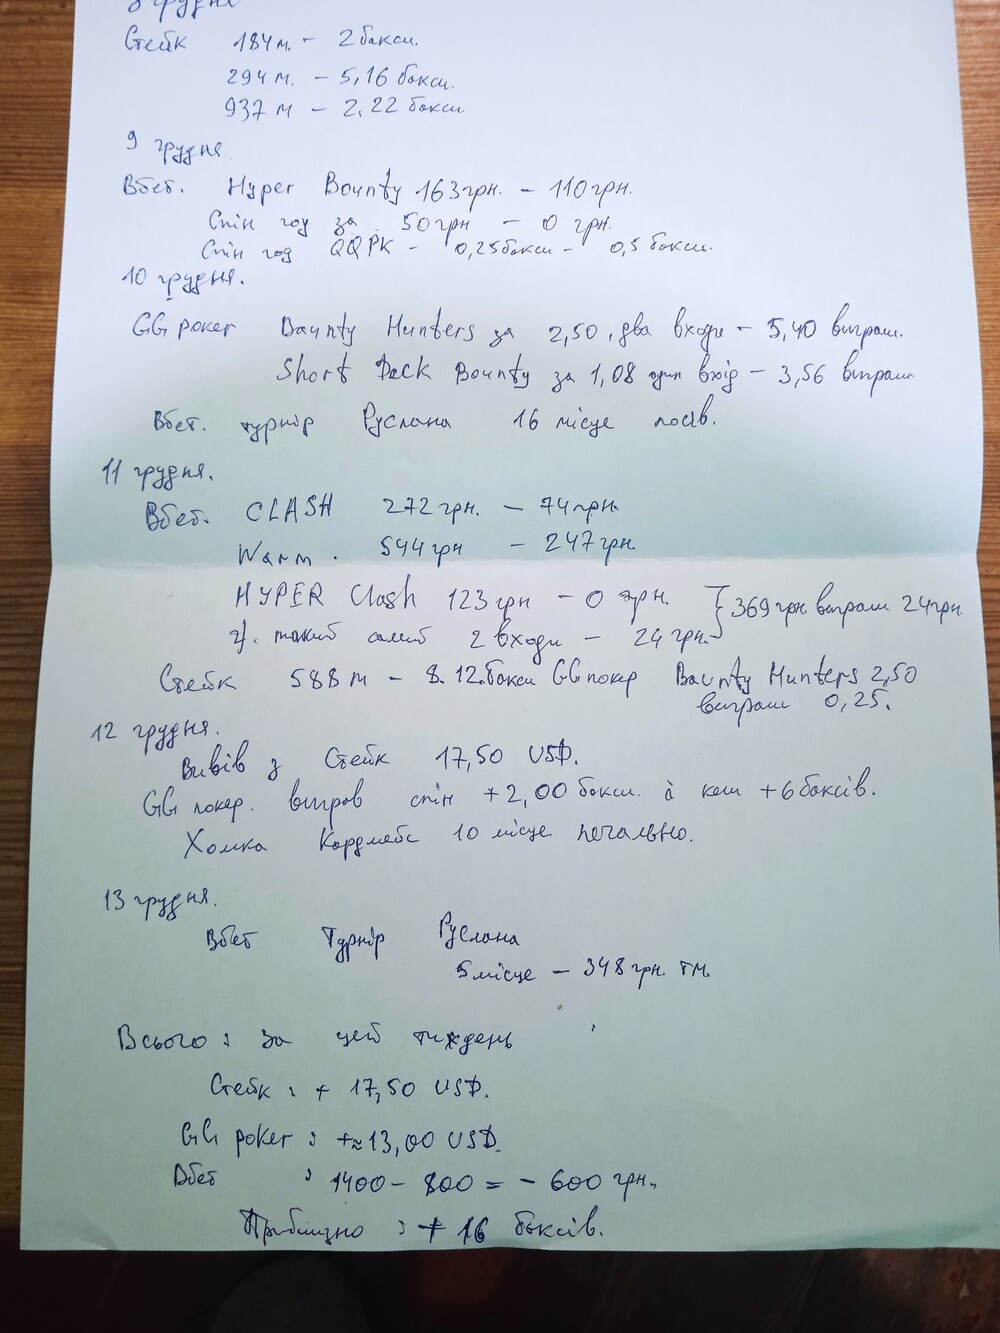 грудня
Стейк 184 м. – 2 бакси.
294 м. – 5,16 бакси.
937 м – 2,22 бакси
9 грудня
Вбет. Hyper Bounty 163 грн. – 110 грн.
Спін год за 50 грн – 0 грн.
Спін год QQPK – 0,25 бакси – 0,5 бакси.
10 грудня.
GG poker Baunty Hunters за 2,50, два входи – 5,40 виграш.
Short Deck Bounty за 1,08 один вхід – 3,56 виграш
Вбет. турнір Руслана 16 місце посів.
11 грудня.
Вбет. CLASH 272 грн. – 74 грн.
Warm. 544 грн – 247 грн.
HYPER Clash 123 грн – 0 грн. } 369 грн виграш 24 грн
такий самий 2 входи – 24 грн.
Стейк 588 м – 8.12. бакси GG покер Baunty Hunters 2,50
виграш 0,25.
12 грудня.
Вивів з Стейк 17,50 USD.
GG покер. виграв спін +2,00 бакси. і кеш +6 баксів.
Хомка Кардмейс 10 місце печально.
13 грудня.
Вбет Турнір Руслана
5 місце – 348 грн. тм.
Всього: за цей тиждень
Стейк: + 17,50 USD.
GG poker: +≈13,00 USD.
Вбет : 1400 – 800 = – 600 грн.
Приблизно: + 16 баксів.